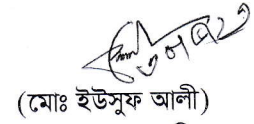 (মোঃ ইউসুফ আলী)